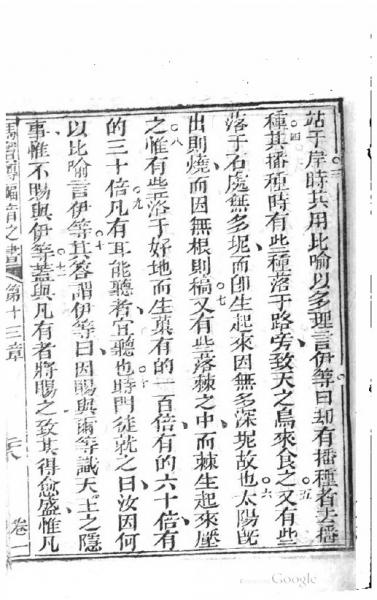 站于岸時共用比喻以多理言伊等曰却有播種者去播
種其播種時有些種落于路旁致天之鳥來食之又有些
落于石處無多坭而卽生起來因無多深坭故也太陽旣
出則燒而因無根則稿又有些落棘之中而棘生起來壓
之惟有些落于好地而生菓有的一百倍有的六十倍有
的三十倍凡有耳能聽者宜聽也時門徒就之曰汝因何
以比喻言伊等其答謂伊等曰因賜與爾等識天王之隱
事惟不賜與伊等蓋與凡有者將賜之致其得愈盛惟凡
福音之書 第十三章 卷一
三
四
五
六
七
八
九
十
十一
Google